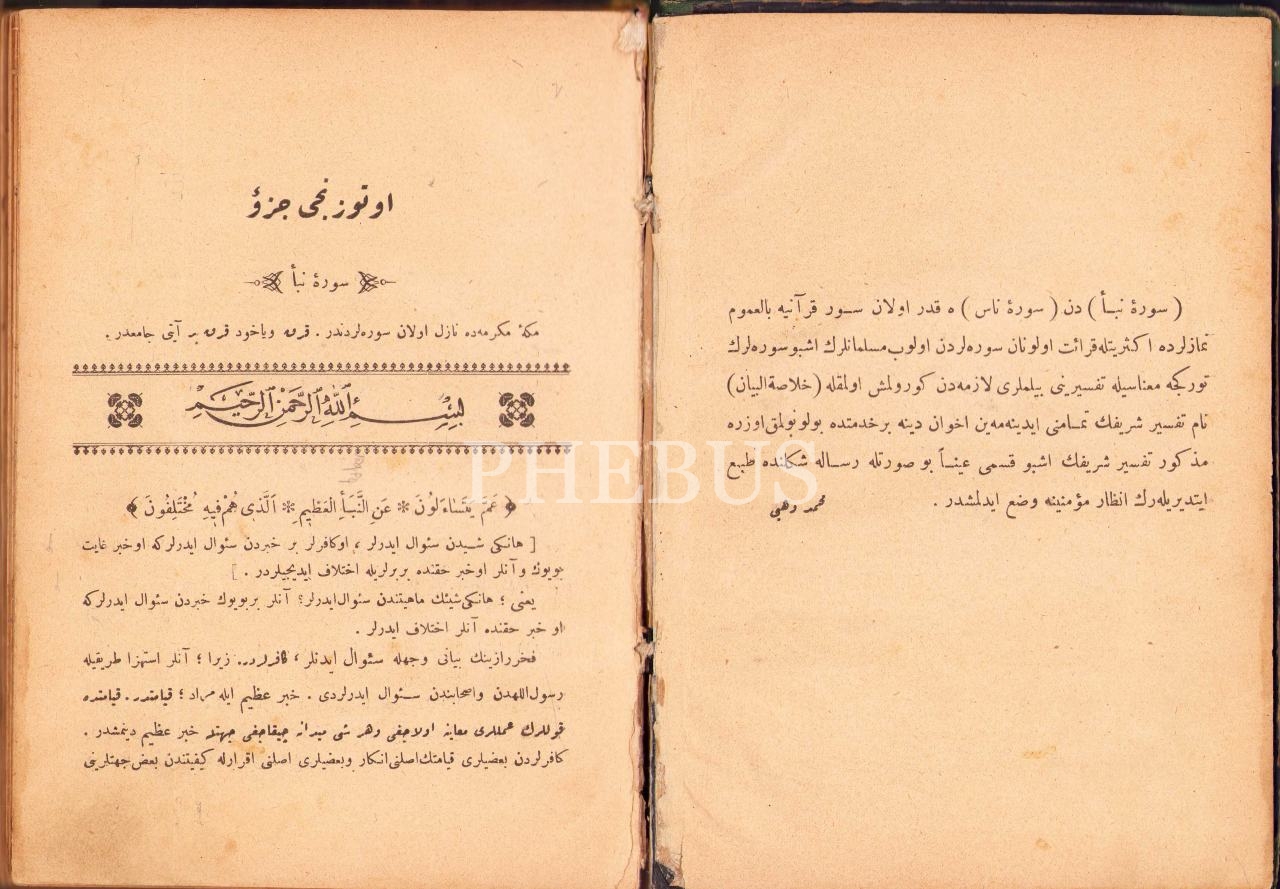 ( سورۀ نبـأ ) دن ( سورۀ ناس ) ه قدر اولان سـور قرآنیه بالعموم
نمازلرده اکثریتله قرائت اولونان سوره‌لردن اولوب مسلمانلرك اشبو سوره‌لرك
تورکجه معناسیله تفسیرینی بیلملری لازمه‌دن کورولمش اولمقله (خلاصة البیان)
نام تفسیر شریفك تمـامنی ایدینه‌مه‌ین اخوان دینه برخدمتده بولونولمق اوزره
مذکور تفسیر شریفك اشبو قسمی عینـاً بو صورتله رسـاله شکلنده طبع
ایتدیریله‌رك انظار مؤمنینه وضع ایدلمشدر .
محمد وهبی
اوتوزنجی جزؤ
سورۀ نبأ
مکۀ مکرمه‌ده نازل اولان سوره‌لردندر . قرق ویاخود قرق بر آیتی جامعدر .
بِسْمِ اللّٰهِ الرَّحْمٰنِ الرَّحِيمِ
﴿ عَمَّ يَتَسَاءَلُونَ * عَنِ النَّبَأِ الْعَظِيمِ * اَلَّذِى هُمْ فِيهِ مُخْتَلِفُونَ ﴾
[ هانکی شـیدن سئوال ایدرلر ، اوکافرلر بر خبردن سئوال ایدرلرکه اوخبر غایت
بویوك و آنلر اوخبر حقنده بربرلریله اختلاف ایدیجیلردر . ]
یعنی ؛ هانکی شیئك ماهیتندن سئوال ایدرلر؟ آنلر بربویوك خبردن سئوال ایدرلرکه
او خبر حقنده آنلر اختلاف ایدرلر .
فخررازینك بیانی وجهله سئـوال ایدنلر ، کافرلردر. زیرا ؛ آنلر استهزا طریقیله
رسول اللهدن واصحابندن سـئوال ایدرلردی . خبر عظیم ایله مراد ؛ قیامتدر . قیامتده
قوللرك عمللری معاینه اولاجغی وهر شی میدانه چیقاجغی جهتله خبر عظیم دینمشدر .
کافرلردن بعضیلری قیامتك اصلنی انکار وبعضیلری اصلنی اقرارله کیفیتندن بعض جهتلرینی
PHEBUS